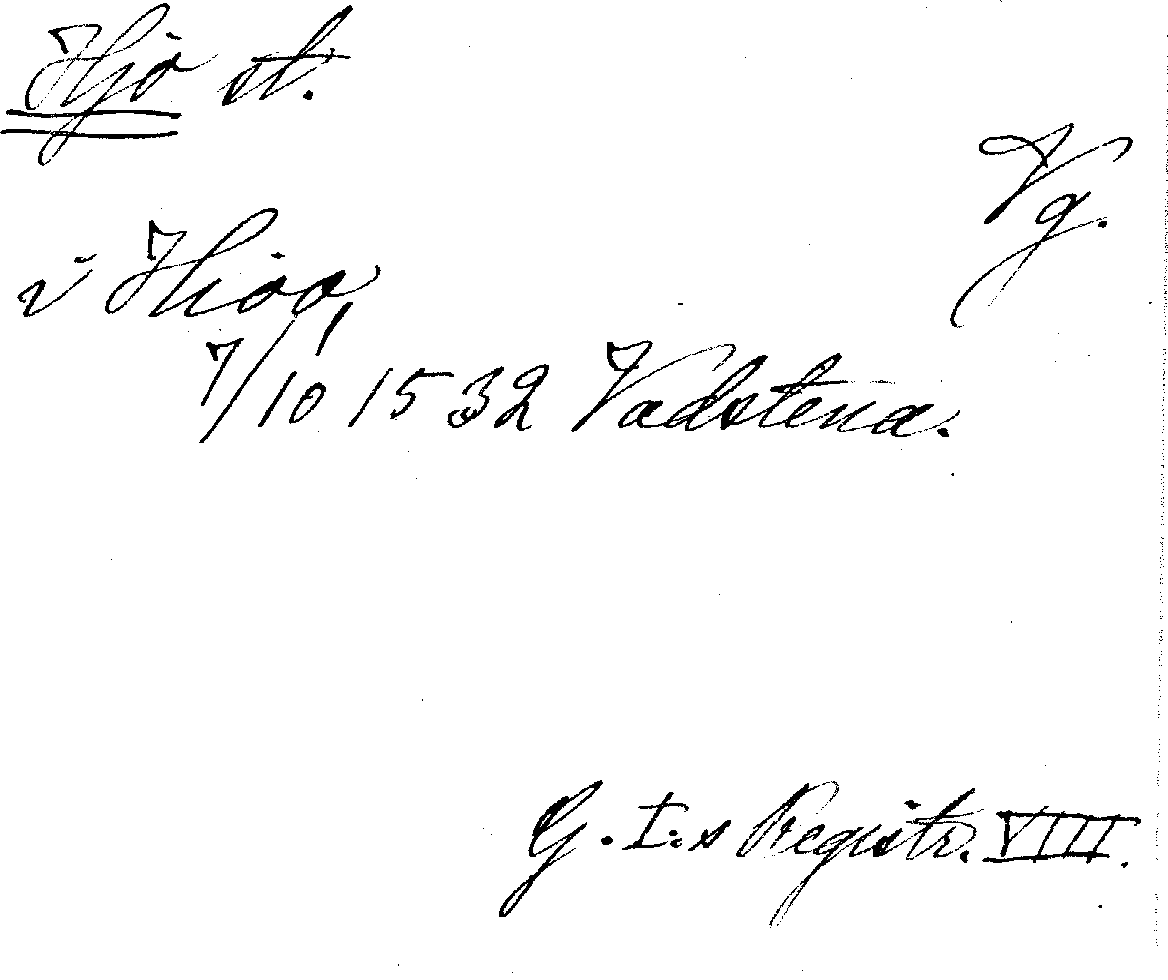 Hjo st.
Vg.
i Hioo,
7/10 1532 Vadstena.
G. I:s Registr. VIII.